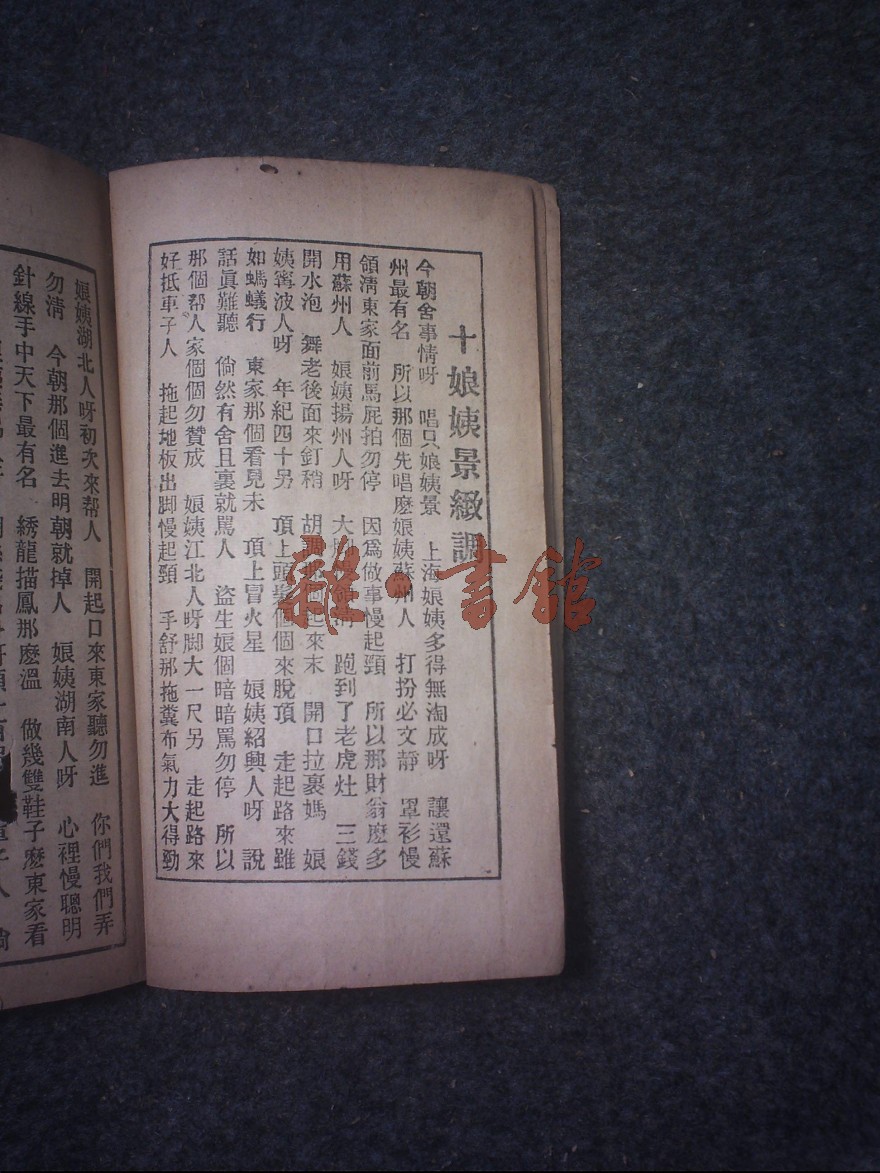 十娘姨景緻調
今朝舍事情呀　唱只娘姨景　上海娘姨多得無淘成呀　讓還蘇
州最有名　所以那個先唱麽娘姨蘇州人　打扮必文靜　罩衫慢
領清東家面前馬屁拍勿停　因爲做事慢起頸　所以那財翁麽多
用蘇州人　娘姨揚州人呀　大　跑到了老虎灶　三錢
開水泡　舞老後面來釘稍　胡　起來末　開口拉裹媽　娘
姨寗波人呀　年紀四十另　頂上頭　個個來脫頂　走起路來雖
如螞蟻行　東家那個看見未　頂上冒火星　娘姨紹興人呀　說
話眞難聽　倘然有舍且裹就罵人　盜生娘個暗暗罵勿停　所以
那個帮人家個個勿贊成　娘姨江北人呀脚大一尺另　走起路來
好抵車子人　拖起地板出脚慢起頸　手舒那拖糞布氣力大得勁
娘姨湖北人呀初次來帮人　開起口來東家聽勿進　你們我們弄
勿清　今朝那個進去明朝就掉人　娘姨湖南人呀　心裡慢聰明
針線手中天下最有名　綉龍描鳳那麽溫　做幾雙鞋子麽東家看
雜·書館